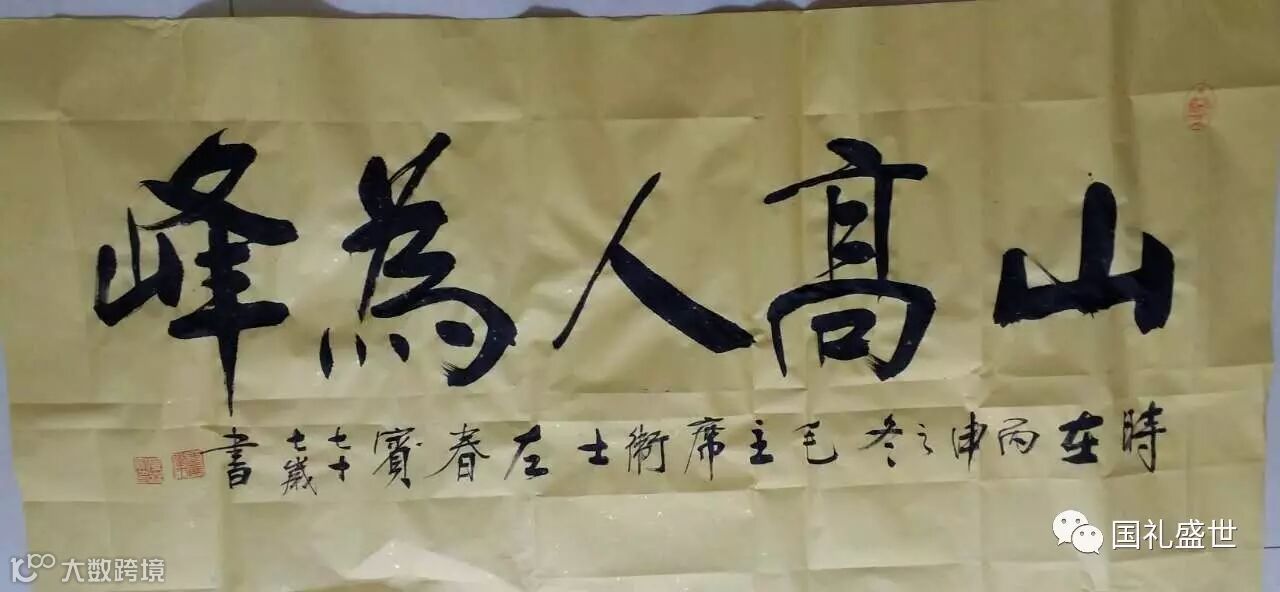 山高人為峰
時在丙申之冬毛主席衛士左春賓七十七歲書
国礼盛世
大数跨境